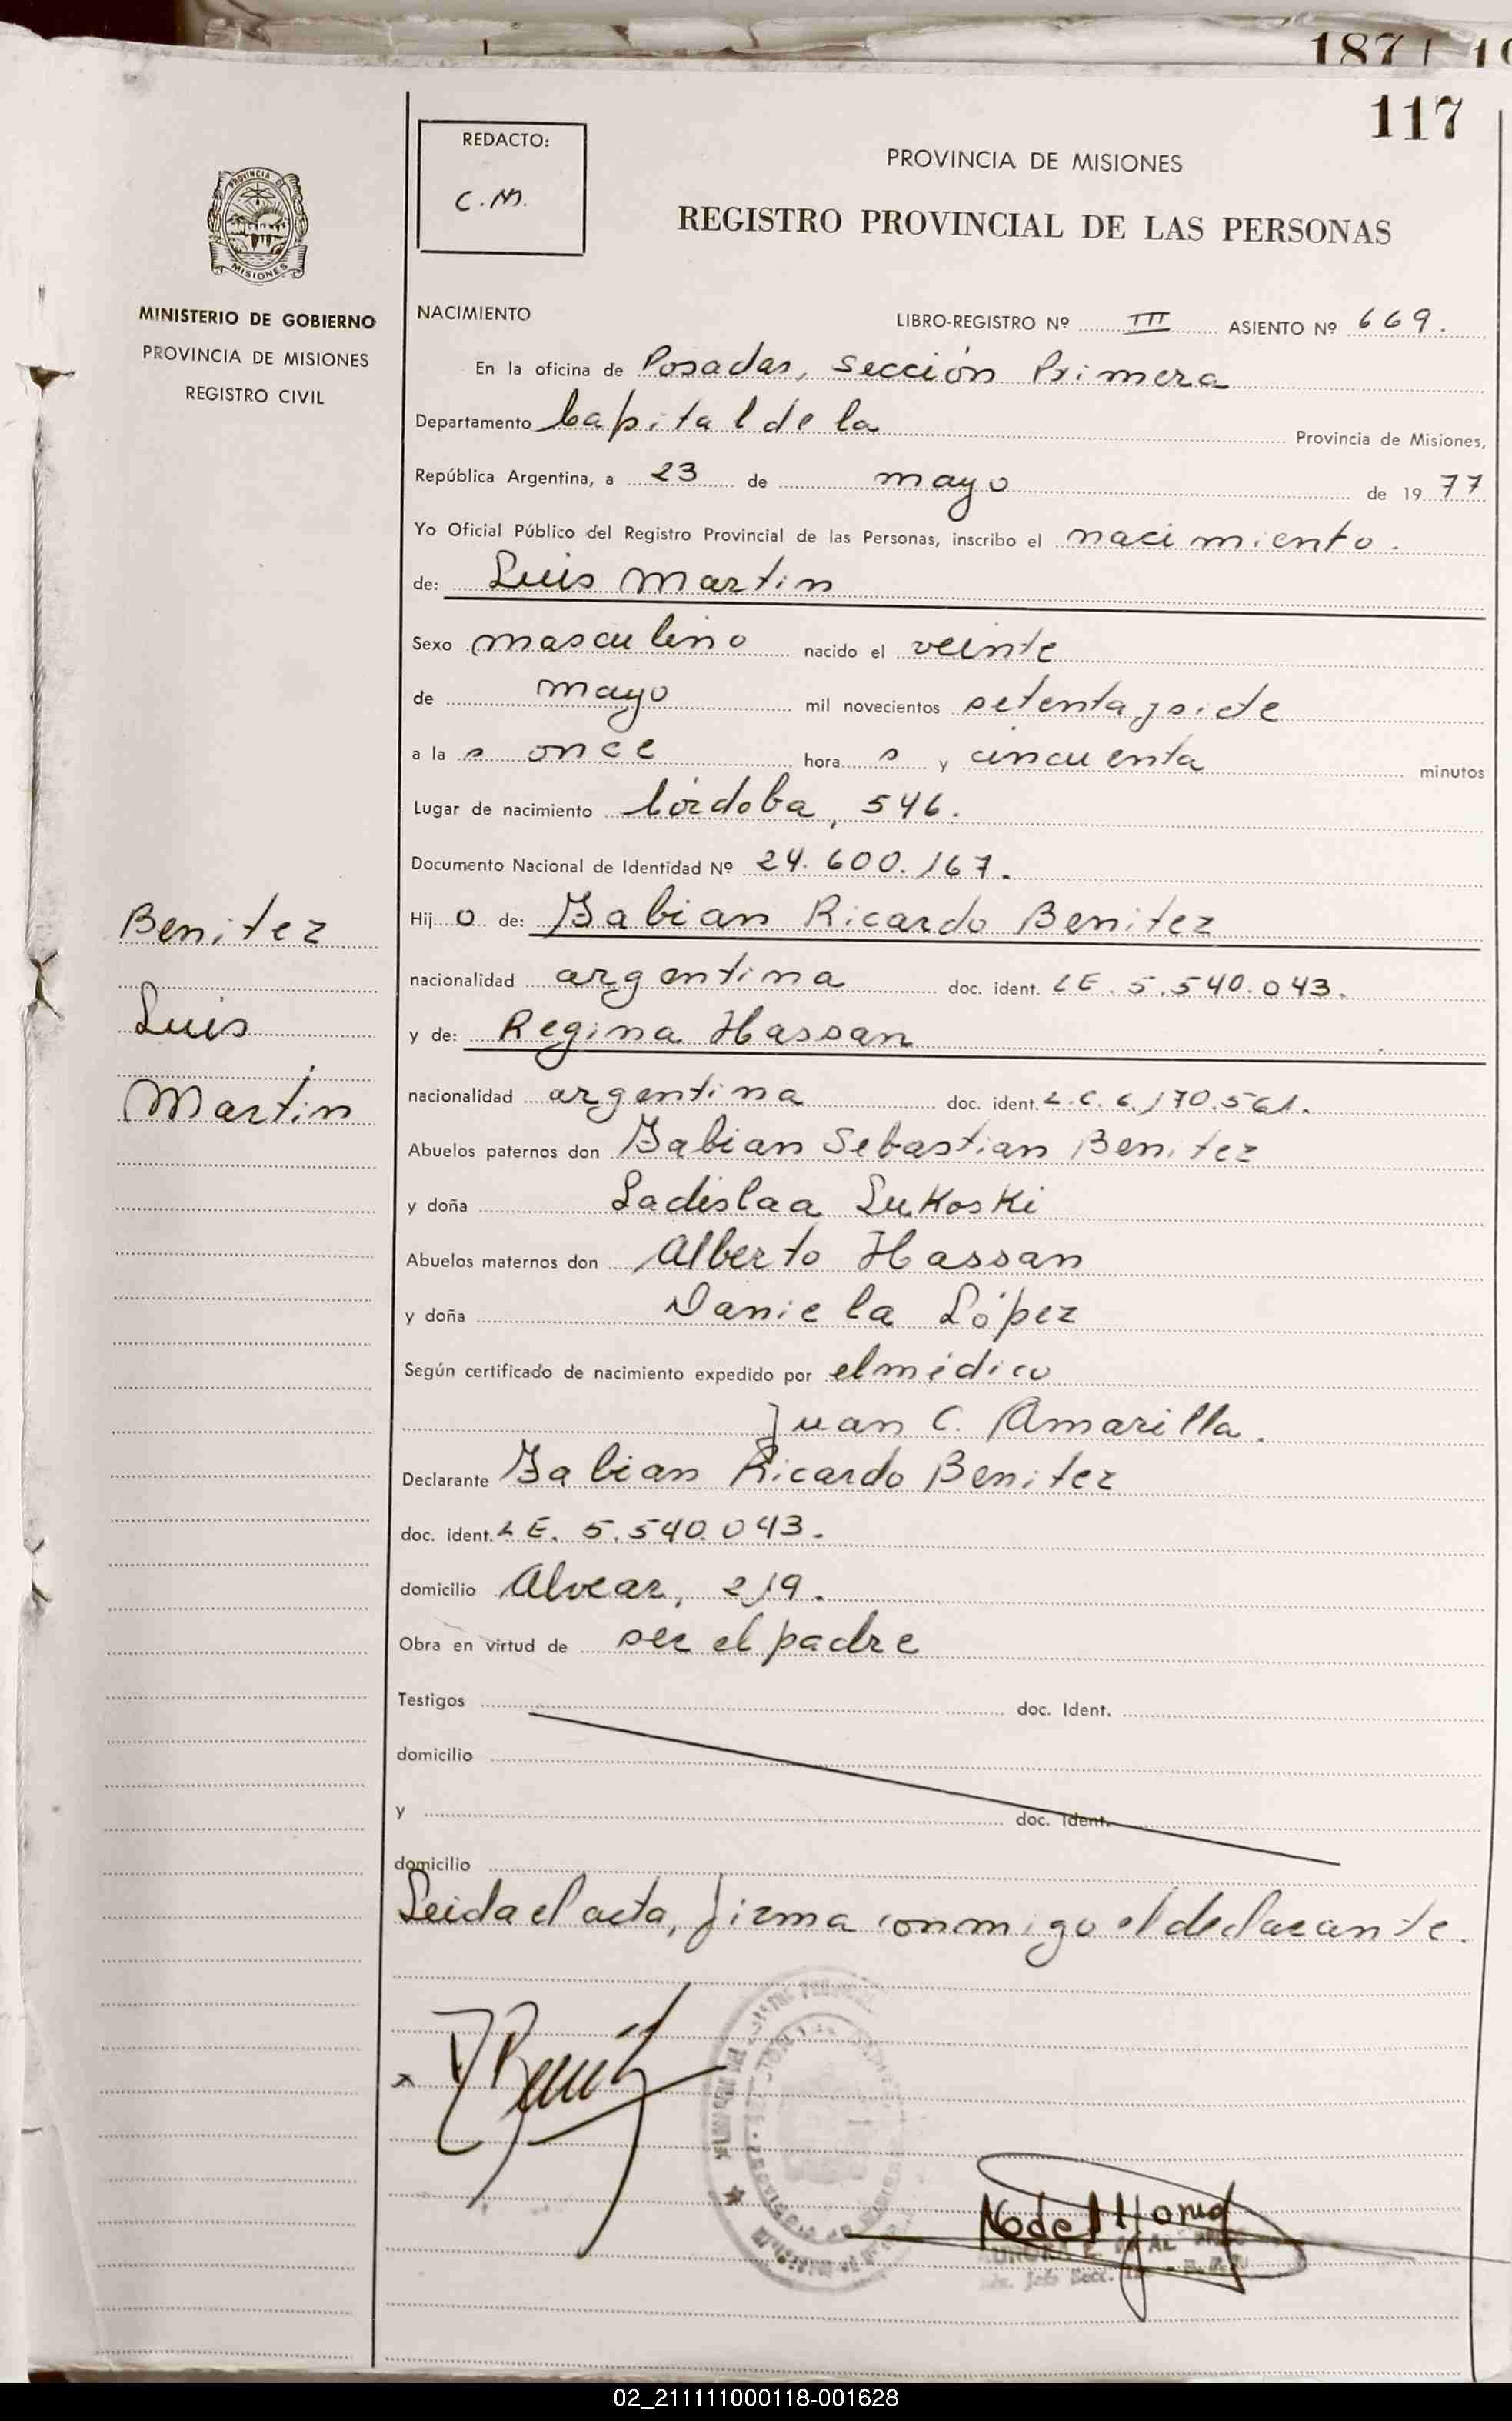 187 1 10
117
REDACTO:
C.M.
PROVINCIA DE MISIONES
REGISTRO PROVINCIAL DE LAS PERSONAS
PROVINCIA DE
MISIONES
MINISTERIO DE GOBIERNO
PROVINCIA DE MISIONES
REGISTRO CIVIL
NACIMIENTO LIBRO-REGISTRO Nº III ASIENTO Nº 669.
En la oficina de Posadas, Sección Primera
Departamento Capital de la Provincia de Misiones,
República Argentina, a 23 de mayo de 19 77
Yo Oficial Público del Registro Provincial de las Personas, inscribo el nacimiento.
de: Luis Martin
Sexo masculino nacido el veinte
de mayo mil novecientos setenta y siete
a la s once hora s y cincuenta minutos
Lugar de nacimiento Córdoba, 546.
Documento Nacional de Identidad Nº 24.600.167.
Hij o de: Fabian Ricardo Benitez
nacionalidad argentina doc. ident. LE. 5.540.043.
y de: Regina Hassan
nacionalidad argentina doc. ident. L.C. 6.170.561.
Abuelos paternos don Fabian Sebastian Benitez
y doña Ladislaa Lukoski
Abuelos maternos don Alberto Hassan
y doña Daniela López
Según certificado de nacimiento expedido por el médico
Juan C. Amarilla.
Declarante Fabian Ricardo Benitez
doc. ident. LE. 5.540.043.
domicilio Alvear, 219.
Obra en virtud de ser el padre
Testigos doc. Ident.
domicilio
y doc. Ident.
domicilio
Leida el acta, firma conmigo el declarante.
Benitez
Luis
Martín
02_211111000118-001628